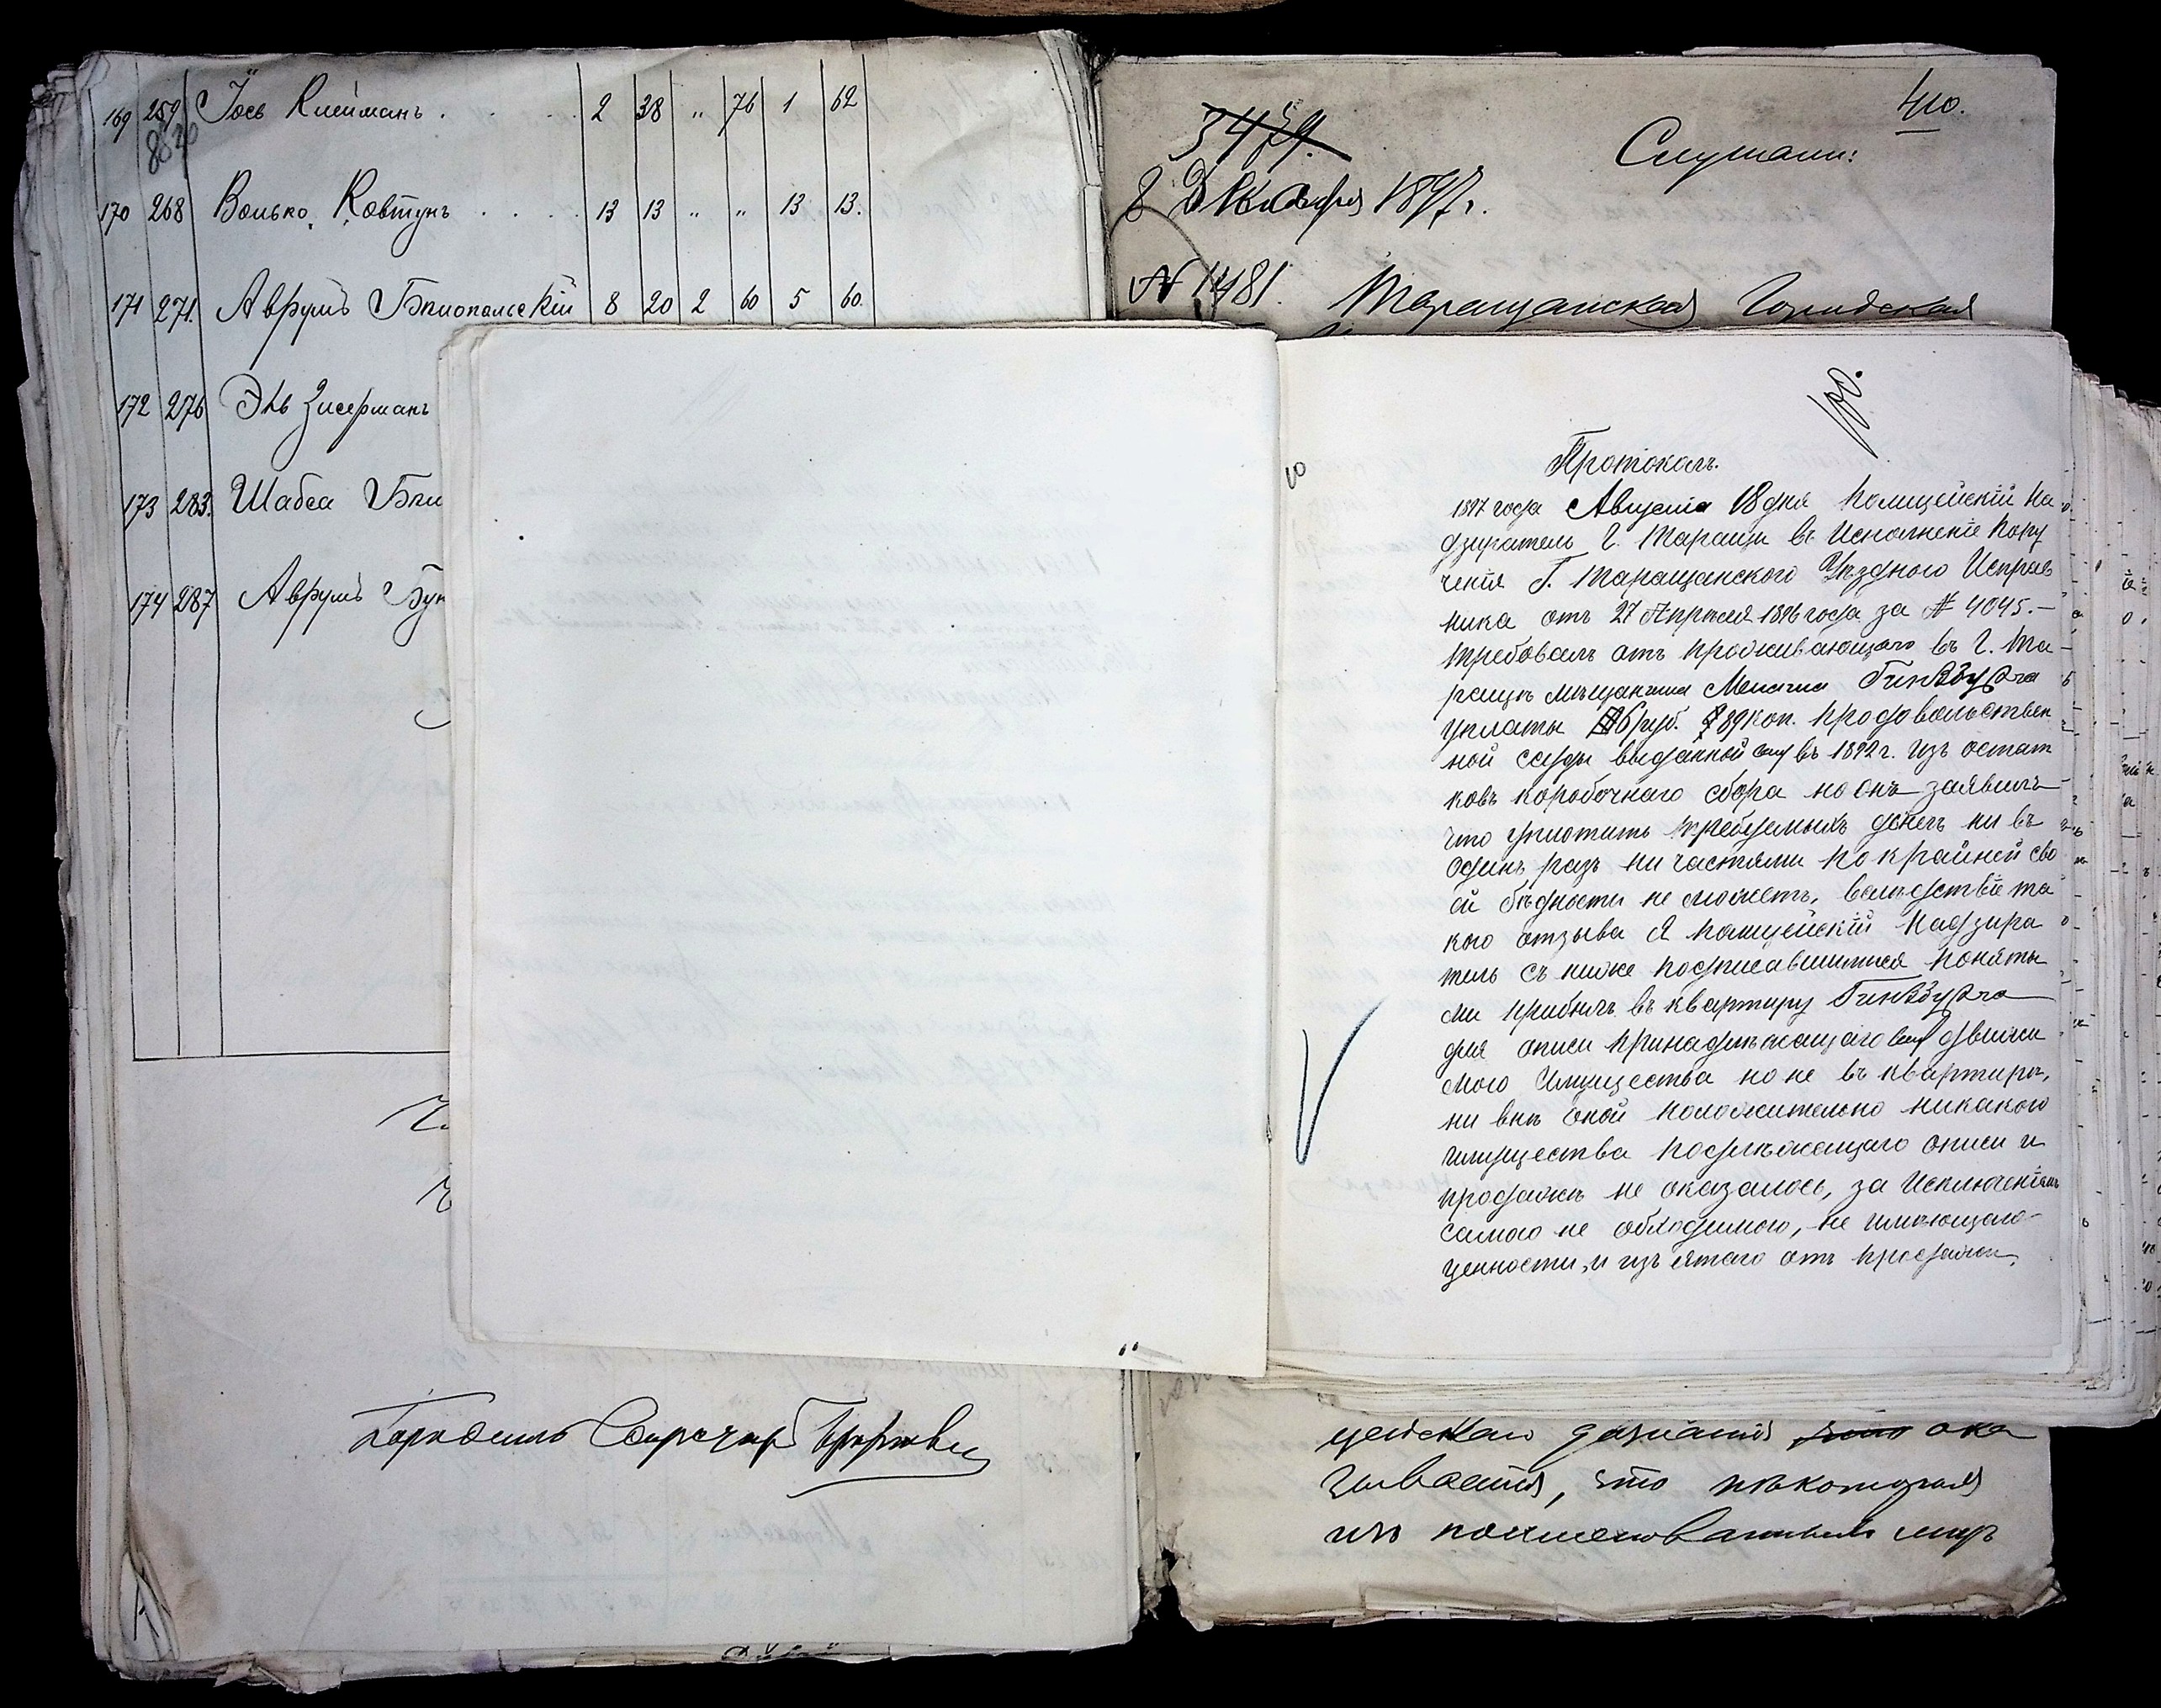 169 259 Іось Клейманъ . . . 2 38 " 76 1 62
170 268 Волько Ковтунъ . . . . 13 13 " " 13 13.
171 271. Аврумъ Бѣлопольскій 8 20 2 60 5 60.
172 276 Эль Зисерманъ
173 283. Шабса
174 287 Аврумъ
410.
Слушали:
8 Декабря 1897 г.
Таращанская Городская
100.
Протоколъ.
1897 года Августа 18 дня Полицейскій На
дзиратель г. Таращи въ исполненіе пору
ченія Г. Таращанского Уѣздного Исправ
ника отъ 27 Апрѣля 1896 года за № 4045.—
требовалъ отъ проживающаго въ г. Та
ращѣ мѣщанина Гинзбурга
уплаты 6 руб. 89 коп. продовольствен
ной ссуды выданной ему въ 1892 г. изъ остат
ковъ коробочнаго сбора но онъ заявилъ
что уплотить требуемыхъ денегъ ни въ
одинъ разъ ни частями по крайней сво
ей бѣдности не можетъ, вслѣдствіе та
кого отзыва Я Полицейскій Надзира
тель съ ниже подписавшимися поняты
ми прибылъ въ квартиру Гинзбурга
для описи принадлежащаго ему движи
мого имущества но не въ квартирѣ,
ни внѣ оной положительно никакого
имущества подлежащаго описи и
продажѣ не оказалось, за исключеніемъ
самого не обходимого, не имѣющаго
ценности, и изъятаго отъ продажи,
дознанія ока
зывается, что нѣкоторыя
изъ поименованныхъ лицъ